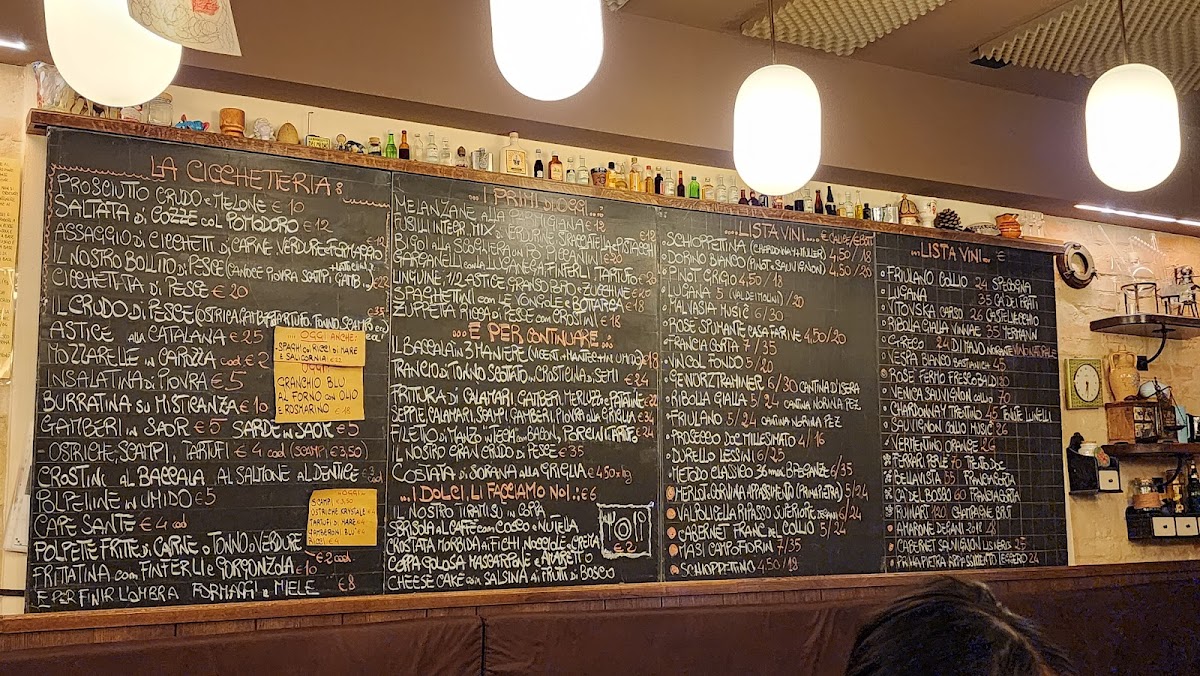 LA CICCHETTERIA:
PROSCIUTTO CRUDO e MELONE € 10
SALTATA di COZZE col POMODORO € 12
ASSAGGIO di CICCHETTI di CARNE VERDURE e FORMAGGIO € 12
IL NOSTRO BOLLITO di PESCE (CANOCE PIOVRA SCAMPI GAMB...) € 22
CICCHETTATA di PESCE € 20
IL CRUDO di PESCE (OSTRICA GAMBERO TARTUFO TONNO SCAMPO
ASTICE alla CATALANA € 25
MOZZARELLE IN CAROZZA cad € 2
INSALATINA di PIOVRA € 5
BURRATINA su MISTICANZA € 10
GAMBERI in SAOR € 5 SARDE in SAOR € 5
- OSTRICHE, SCAMPI, TARTUFI € 4 cad (SCAMPI € 3,50)
CROSTINI AL BACCALA AL SALMONE AL DENTICE
POLPETTINE IN UMIDO € 5
CAPE SANTE € 4 cad
POLPETE FRITE di CARNE o TONNO o VERDURE € 2 cad
FRITTATINA con FINFERLI e GORGONZOLA € 10
E PER FINIR L'OMBRA FORMAGGI e MIELE € 8
OGGI ANCHE:
SPAGHI con RICCI di MARE
e SALICORNIA
OGGI
GRANCHIO BLU
AL FORNO con OLIO
e ROSMARINO € 18
OGGI
SCAMPI € 3,50
OSTRICHE KRYSTALE
TARTUFI di MARE
GAMBERONI BLU
RICCI
I PRIMI DI OGGI...
MELANZANE ALLA PARMIGIANA € 12
FUSILLI INTEGR. MIX di VERDURINE STRACCIATELLA PISTACCHI
BIGOI alla SCOGLIERA con POMODORINI € 20
GARGANELLI con LUGANEGA FINFERLI TARTUFO
LINGUINE, 1/2 ASTICE, GRANSOPORO e ZUCCHINE
SPAGHETTINI con LE VONGOLE e BOTTARGA
ZUPPETTA RICCA di PESCE con CROSTINI € 18
... E PER CONTINUARE...
IL BACCALA IN 3 MANIERE (VICENT. MANTEC. IN UMIDO) € 18
TRANCIO di TONNO SCOTATO in CROSTICINA di SEMI € 24
FRITURA di CALAMARI, GAMBERI, MERLUZZO e PATATINE
SEPPIE, CALAMARI, SCAMPI, GAMBERI, PIOVRA alla GRIGLIA € 24
FILETTO di MANZO in TECIA con BACON, PORCINI TARTUFO
IL NOSTRO GRAN CRUDO di PESCE € 35
COSTATA di SORANA alla GRIGLIA € 4,50 x hg
... I DOLCI, LI FACCIAMO NOI... € 6
IL NOSTRO TIRATISU in COPPA
SBRISOLA AL CAFFE con COCCO e NUTELLA
CROSTATA MORBIDA ai FICHI NOCCIOLE e GRETA
COPPA GOLOSA MASCARPONE e AMARETTO
CHEESE CAKE con SALSINA di FRUTTI di BOSCO
€ 2
...LISTA VINI... € CALICE/€ BOTT
SCHIOPPETTINA (CHARDONNAY e TULLER) 4,50 / 18
DORINO BIANCO (PINOT e SAUVIGNON) 4,50 / 20
PINOT GRIGIO 4,50 / 18
LUGANA 5 (VALDEIMOLINI) / 20
MALVASIA MUSIC 6/30
ROSÉ SPUMANTE CASA FARIVE 4,50/20
FRANCIACORTA 7/35
VIN COL FONDO 5/20
GEWÜRZTRAMINER 6/30 CANTINA D'ISERA
RIBOLLA GIALLA 5/24 CANTINA NORINA PEZ
FRIULANO 5/24 CANTINA NORINA PEZ
PROSECCO DOC MILLESIMATO 4/16
DURELLO LESSINI 6/25
METODO CLASSICO 36 mesi BREGANZE 6/35
MERLOT e CORVINA APPASSIMENTO (PRIMA PIETRA) 5/24
VALPOLICELLA RIPASSO SUPERIORE DEGANI 6/24
CABERNET FRANC del COLLIO 5/24
MASI CAMPOFIORIN 7/35
SCHIOPPETTINO 4,50/18
LISTA VINI... €
FRIULANO COLLIO 24 SPESSOGNA
LUGANA 35 CA' DEI FRATI
VITOVSKA CARSO 26 CASTELVECCHIO
RIBOLLA GIALLA VINNAE 35 JERMANN
GRECO 24 DI MAJO NORANTE VINO NATURALE
VESPA BIANCO BASTIANICH 45
ROSÉ FERMO FRESCOBALDI 30
VENICA SAUVIGNON COLLIO 70
CHARDONNAY TRENTINO 45 TENUTE LUNELLI
SAUVIGNON COLLIO MUSIC 26
VERMENTINO ORANGE 26
FERRARI PERLE 70 TRENTO DOC
BELLAVISTA 55 FRANCIACORTA
CA' DEL BOSCO 60 FRANCIACORTA
RUINART 120 CHAMPAGNE BRUT
AMARONE DEGANI 2018 48
CABERNET SAUVIGNON LIS NERIS 25
PRIMA PIETRA APPASSIMENTO LEGGERO 24